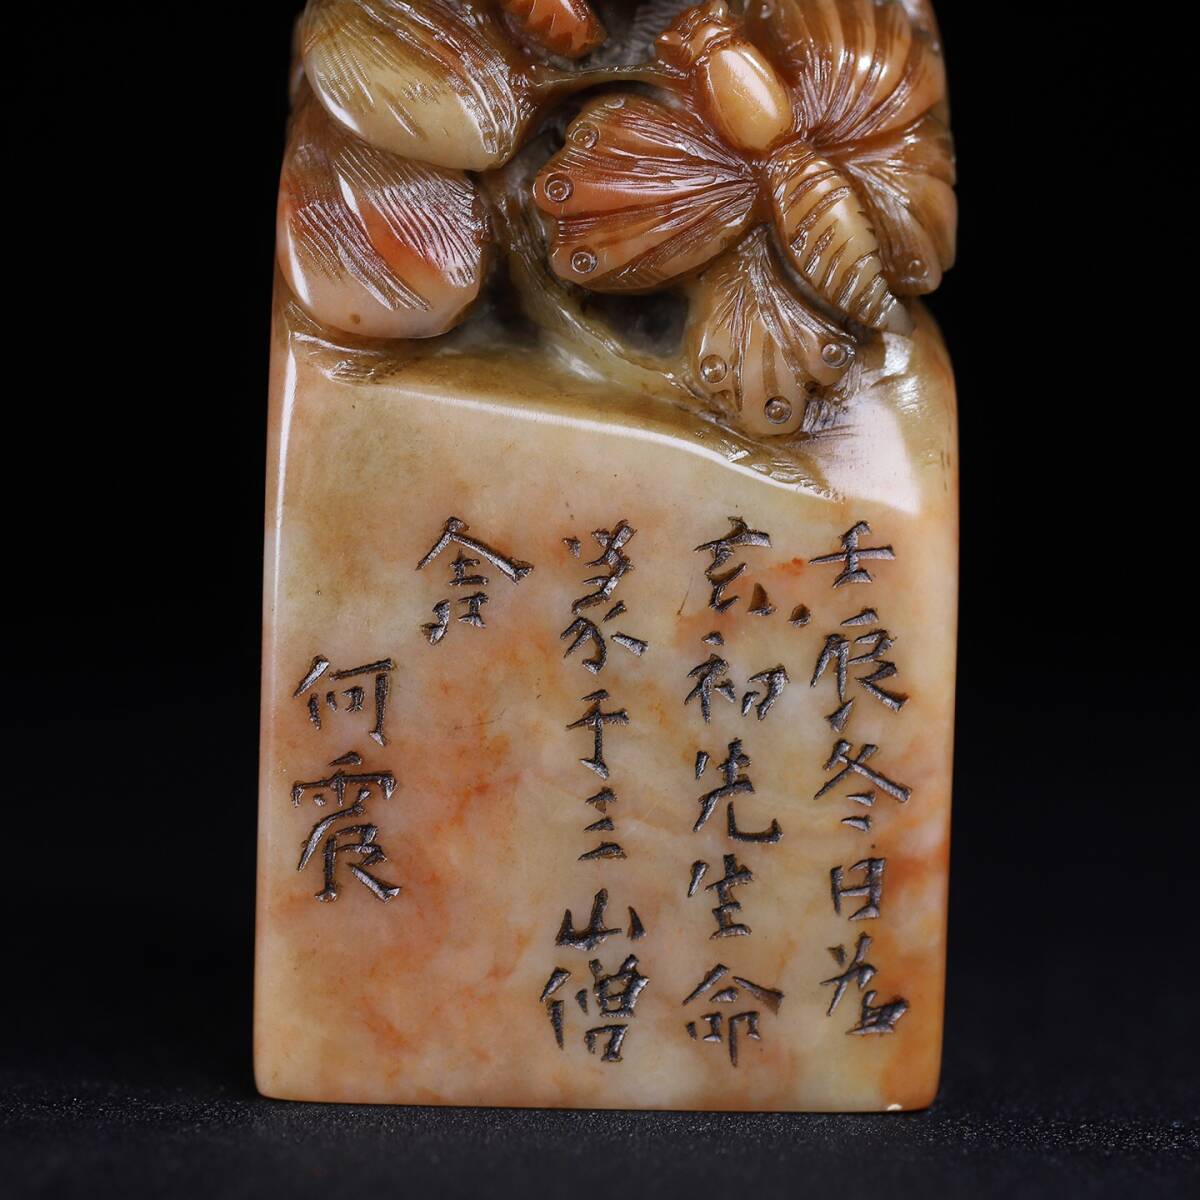 壬辰冬日為
初先生命
篆于三山僧
舍
何震